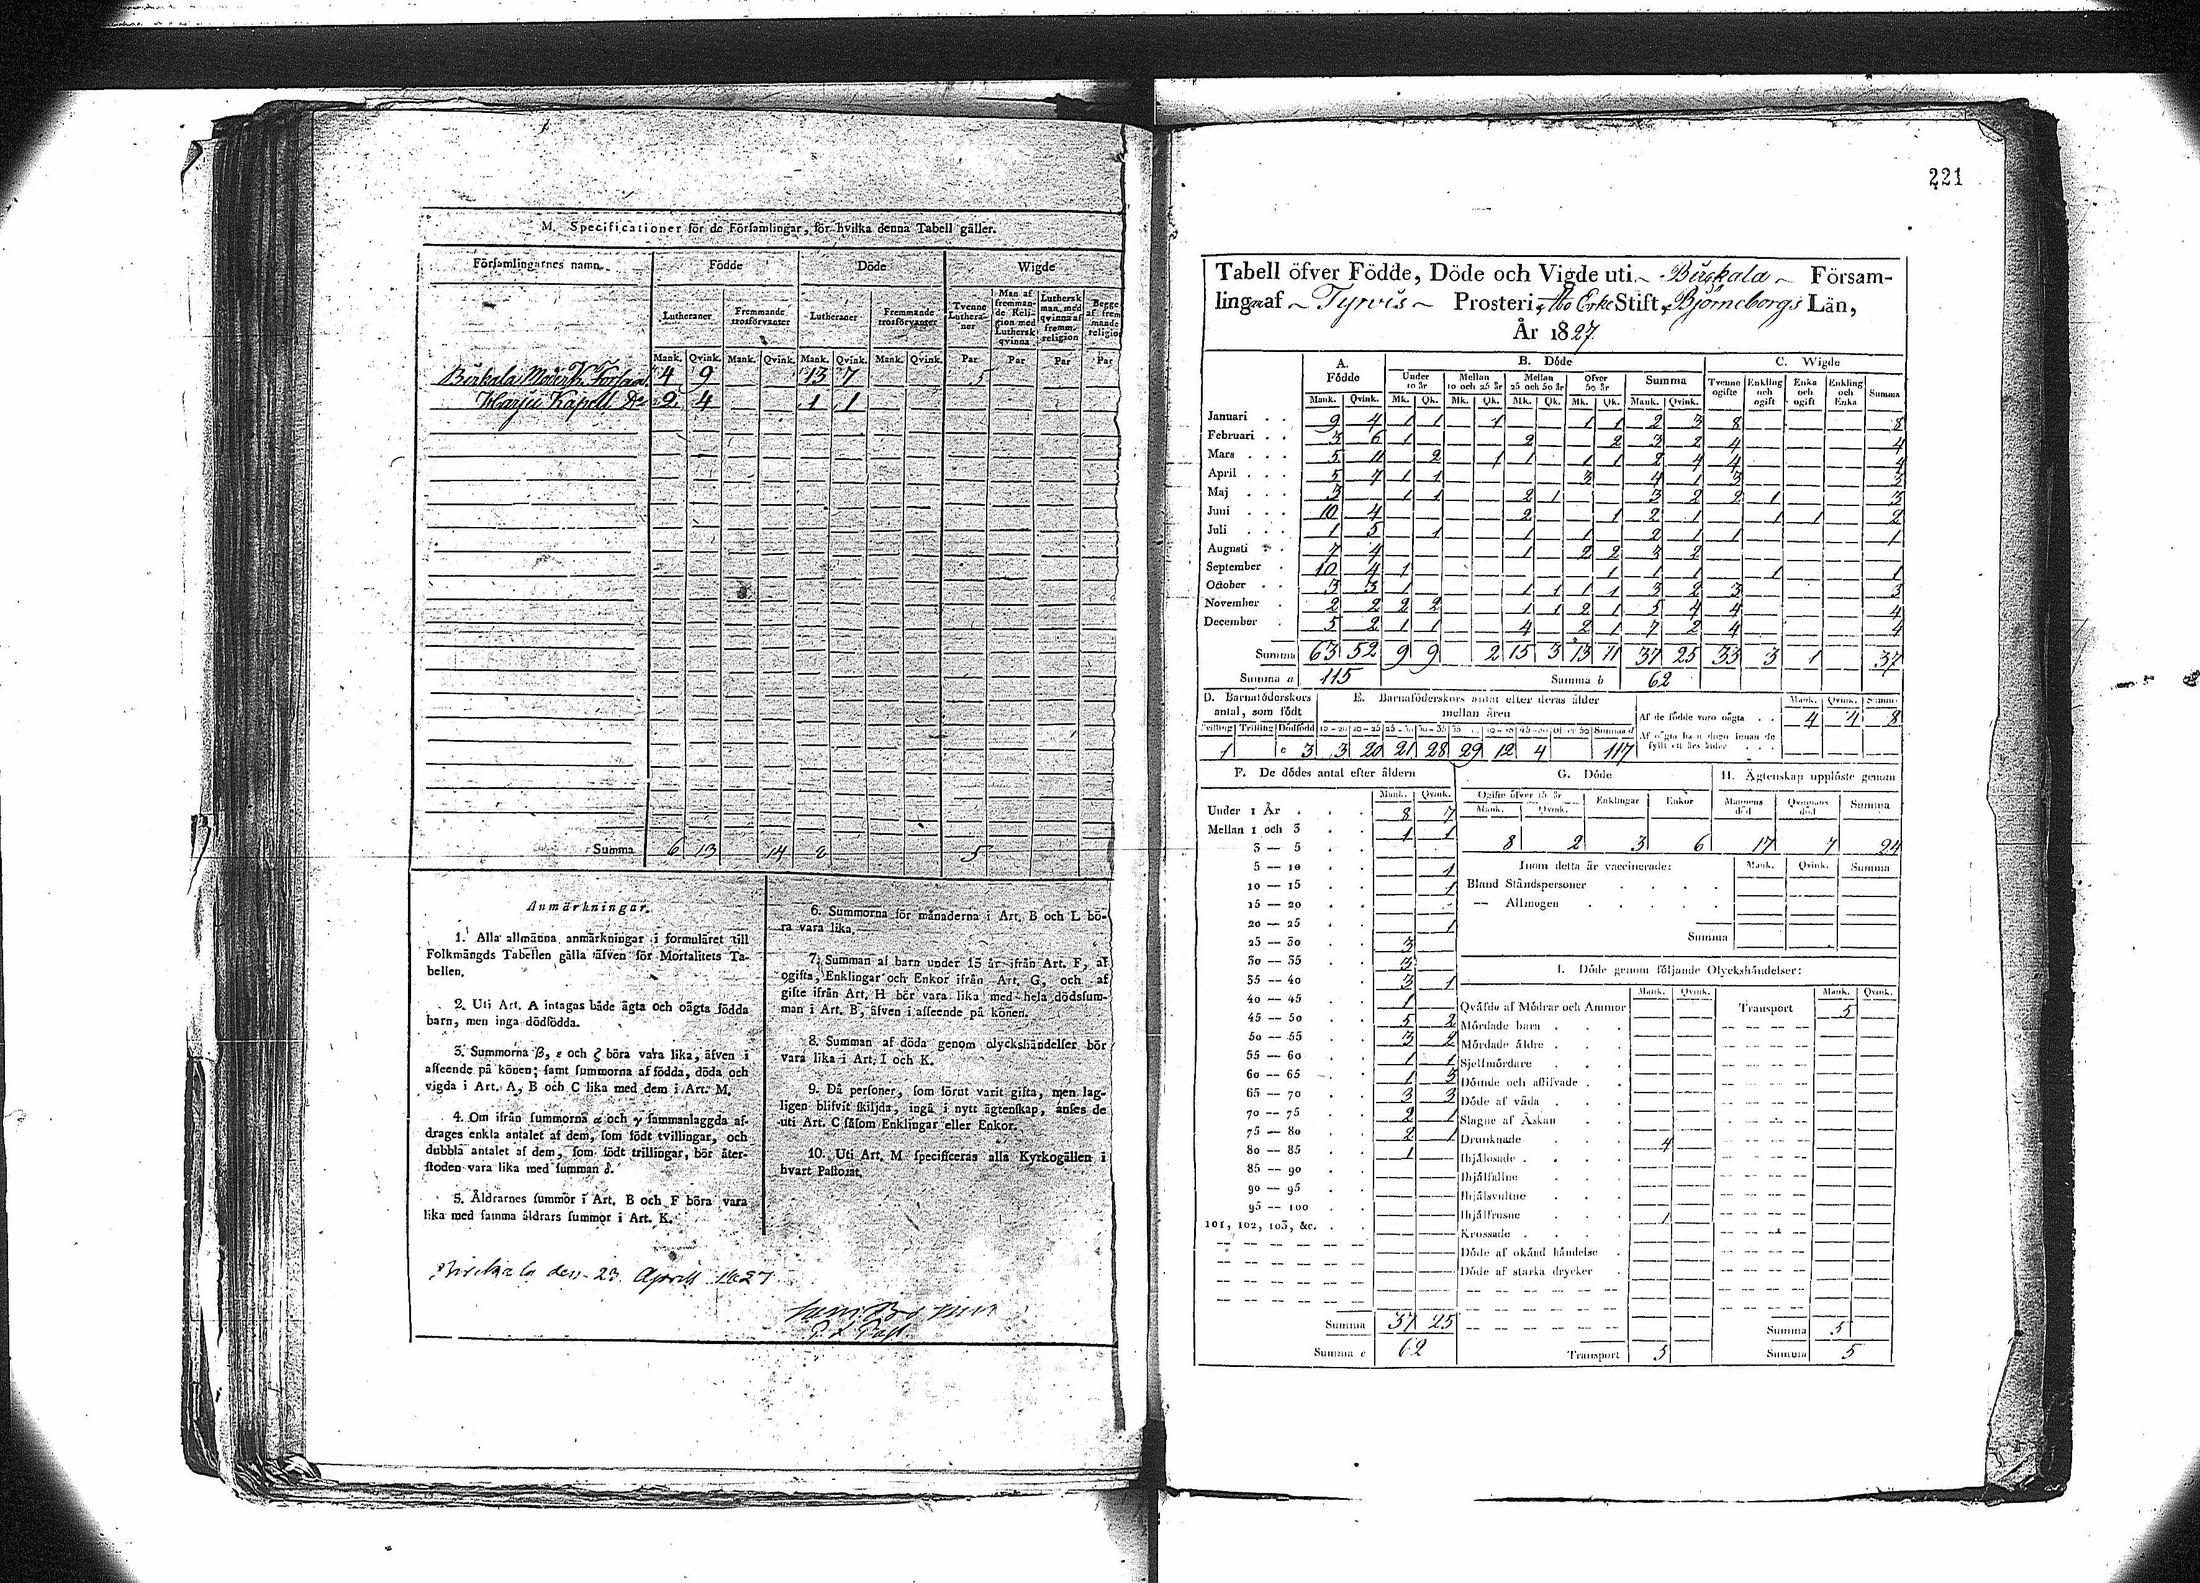 M. Specificationer för de Församlingar, för hvilka denna Tabell gäller.
Församlingarnes namn. Födde Döde Wigde
Lutheraner Fremmande trosförvanter Lutheraner Fremmande trosförvanter Tvenne Lutheraner Man af fremmande Religion med Luthersk qvinna Luthersk man med qvinna af fremm. religion Begge af fremmande religion
Mank. Qvink. Mank. Qvink. Mank. Qvink. Mank. Qvink. Par Par Par Par
Birkala Moder K. Församl. 4 9 13 7 5
Harju Kapell 2 4 1 1
Summa 6 13 14 8 5
Anmärkningar.
1. Alla allmänna anmärkningar i formuläret till
Folkmängds Tabellen gälla äfven för Mortalitets Ta-
bellen.
2. Uti Art. A intagas både ägta och oägta födda
barn, men inga dödfödda.
3. Summorna β, ε och ζ böra vara lika, äfven i
afseende på könen; samt summorna af födda, döda och
vigda i Art. A, B och C lika med dem i Art. M.
4. Om ifrån summorna α och γ sammanlaggda af-
drages enkla antalet af dem, som födt tvillingar, och
dubbla antalet af dem, som födt trillingar, bör åter-
stoden vara lika med summan δ.
5. Åldrarnes summor i Art. B och F böra vara
lika med samma åldrars summor i Art. K.
6. Summorna för månaderna i Art. B och L bö-
ra vara lika.
7. Summan af barn under 15 år ifrån Art. F, af
ogifta, Enklingar och Enkor ifrån Art. G, och af
gifte ifrån Art. H bör vara lika med hela dödssum-
man i Art. B, äfven i afseende på könen.
8. Summan af döda genom olyckshändelser bör
vara lika i Art. I och K.
9. Då personer, som förut varit gifta, men lag-
ligen blifvit skiljda, ingå i nytt ägtenskap, anses de
uti Art. C såsom Enklingar eller Enkor.
10. Uti Art. M specificeras alla Kyrkogällen i
hvart Pastorat.
Birckala den 23 Aprill 1827
221
Tabell öfver Födde, Döde och Vigde uti Birkala Försam-
lingar af Tyrvis Prosteri, Åbo Erke Stift, Björneborgs Län,
År 1827.
A. Födde B. Döde C. Wigde
Under 10 år Mellan 10 och 25 år Mellan 25 och 50 år Öfver 50 år Summa Tvenne ogifte Enkling och ogift Enka och ogift Enkling och Enka Summa
Mank. Qvink. Mk. Qk. Mk. Qk. Mk. Qk. Mk. Qk. Mank. Qvink.
Januari 9 4 1 1 1 1 1 2 3 8 8
Februari 3 6 1 2 2 3 2 4 4
Mars 5 11 2 1 1 1 1 2 4 4 4
April 5 7 1 1 3 4 1 3 3
Maj 3 1 1 2 1 3 2 2 1 3
Juni 10 4 2 1 2 1 1 1 2
Juli 1 5 1 1 1 2 1 1 1
Augusti 7 4 1 2 2 3 2
September 10 4 1 1 1 1 1 1
October 3 3 1 1 1 1 1 3 2 3 3
November 2 2 2 2 1 1 2 1 5 4 4 4
December 5 2 1 1 4 2 1 7 2 4 4
Summa 63 52 9 9 2 15 3 13 11 37 25 33 3 1 37
Summa a 115 Summa b 62
D. Barnaföderskors antal, som födt
Tvilling Trilling Dödfödd
1 c 3
E. Barnaföderskors antal efter deras ålder
mellan åren
Summa d
3 20 21 28 29 12 4 117
Mank. Qvink. Summa
Af de födde voro oägta 4 4 8
Af oägta barn dogo innan de
fyllt ett års ålder
F. De dödes antal efter åldern
Mank. Qvink.
Under 1 År 8 7
Mellan 1 och 3 1 1
3 — 5
5 — 10 1
10 — 15 1
15 — 20
20 — 25 1
25 — 30 3
30 — 35 3
35 — 40 3 1
40 — 45 1
45 — 50 5 2
50 — 55 3 2
55 — 60 1 1
60 — 65 1 3
65 — 70 3 3
70 — 75 2 1
75 — 80 2 1
80 — 85 1
85 — 90
90 — 95
95 — 100
101, 102, 103, &c.
Summa 37 25
Summa e 62
G. Döde
Ogifte öfver 15 år Enklingar Enkor
Mank. Qvink.
8 2 3 6
H. Ägtenskap upplöste genom
Mannens död Qvinnans död Summa
17 7 24
Inom detta år vaccinerade: Mank. Qvink. Summa
Bland Ståndspersoner
— Allmogen
Summa
I. Döde genom följande Olyckshändelser:
Mank. Qvink. Mank. Qvink.
Qväfde af Mödrar och Ammor Transport 5
Mördade barn
Mördade äldre
Sjelfmördare
Dömde och afslifvade
Döde af våda
Slagne af Åskan
Drunknade 4
Ihjälosade
Ihjälfallne
Ihjälsvultne
Ihjälfrusne 1
Krossade
Döde af okänd händelse
Döde af starka drycker
Summa 5
Transport 5 Summa 5